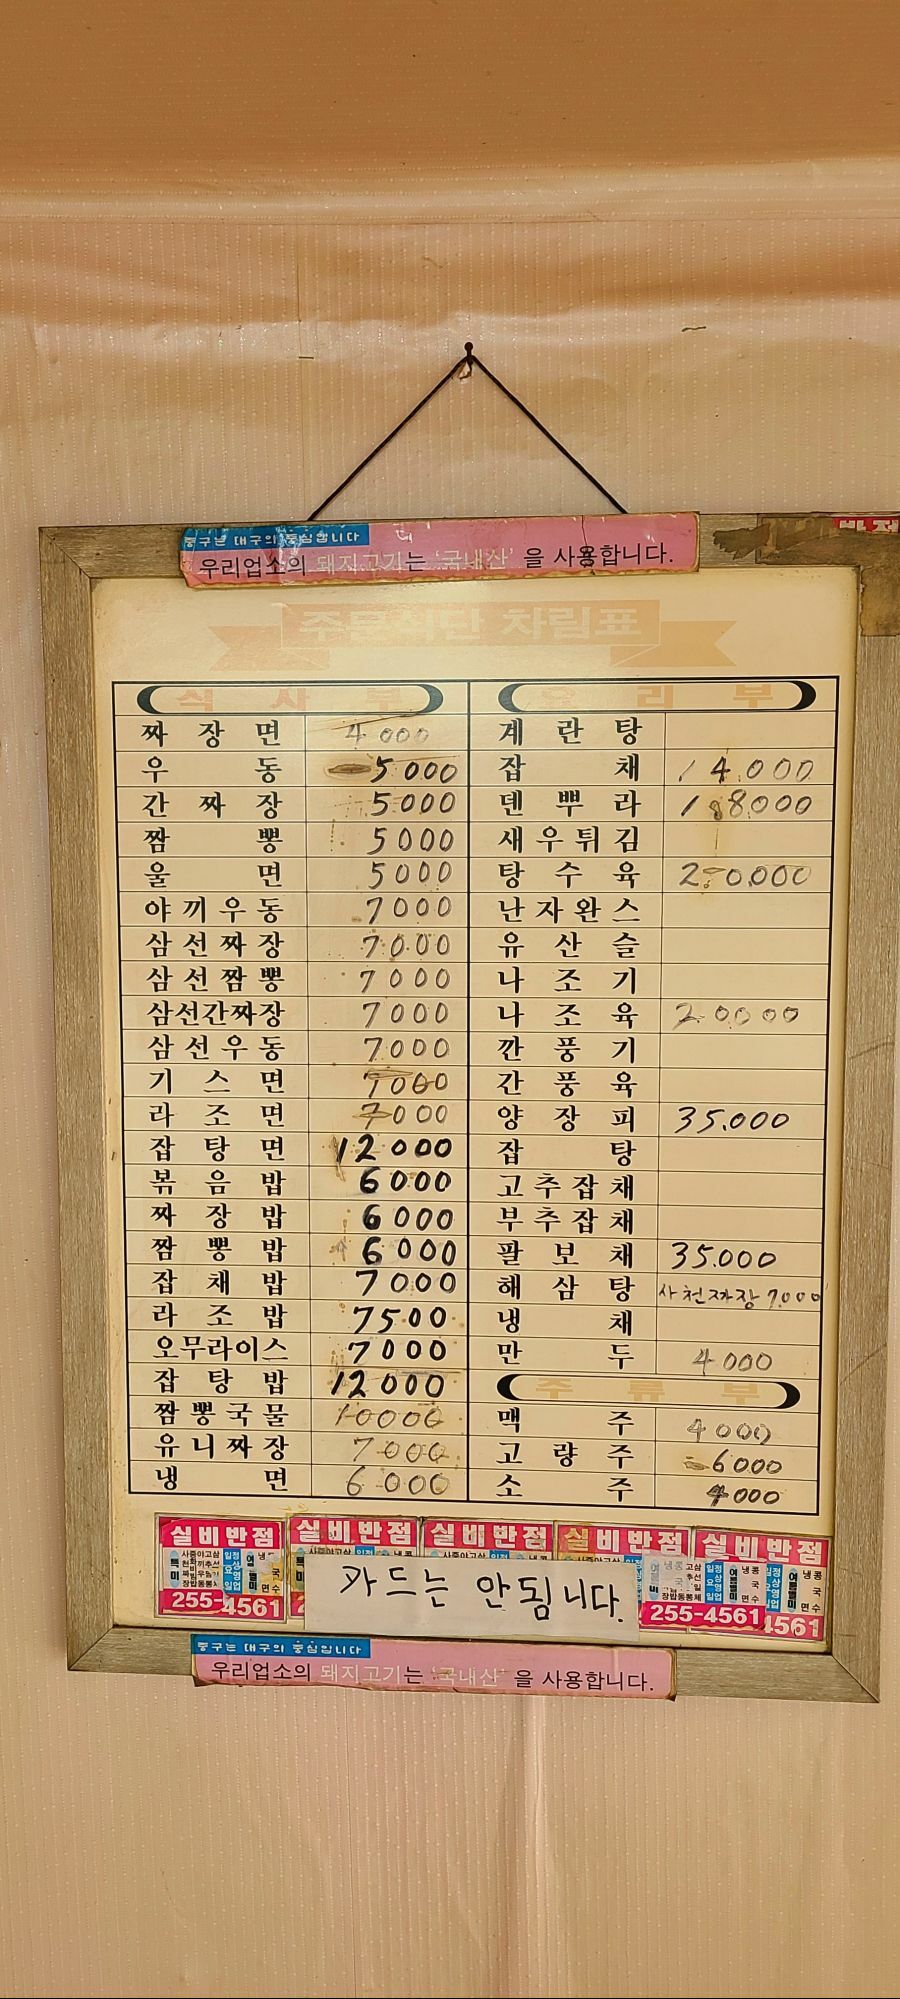 중구는 대구의 중심입니다
우리업소의 돼지고기는 '국내산' 을 사용합니다.
반점
주문식단 차림표
식사부
짜장면 4000
우동 5000
간짜장 5000
짬뽕 5000
울면 5000
야끼우동 7000
삼선짜장 7000
삼선짬뽕 7000
삼선간짜장 7000
삼선우동 7000
기스면 7000
라조면 7000
잡탕면 12000
볶음밥 6000
짜장밥 6000
짬뽕밥 6000
잡채밥 7000
라조밥 7500
오무라이스 7000
잡탕밥 12000
짬뽕국물 10000
유니짜장 7000
냉면 6000
요리부
계란탕
잡채 14.000
덴뿌라 18000
새우튀김
탕수육 20.000
난자완스
유산슬
나조기
나조육 20000
깐풍기
간풍육
양장피 35.000
잡탕
고추잡채
부추잡채
팔보채 35.000
해삼탕 사천짜장 7.000
냉채
만두 4000
주류부
맥주 4000
고량주 6000
소주 4000
실비반점 실비반점 실비반점 실비반점 실비반점
카드는 안됩니다.
255-4561
255-4561
4561
중구는 대구의 중심입니다
우리업소의 돼지고기는 '국내산' 을 사용합니다.